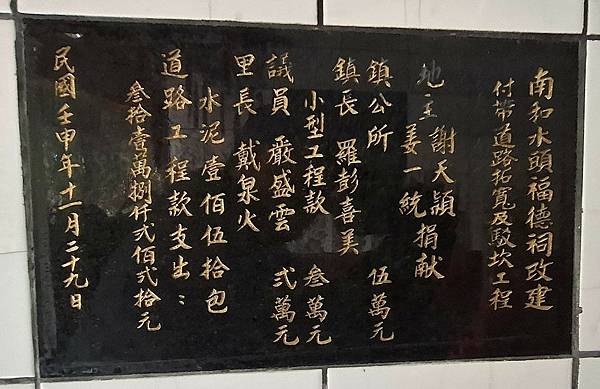 南和水頭福德祠改建
付帶道路拓寬及駁坎工程
地主謝天頴
姜一統捐献
鎮公所 伍萬元
鎮長 羅彭喜美
小型工程款 叁萬元
議員 嚴盛雲 弍萬元
里長 戴泉火
水泥壹佰伍拾包
道路工程款支出：
叁拾壹萬捌仟弍佰弍拾元
民國壬甲年十一月二十九日